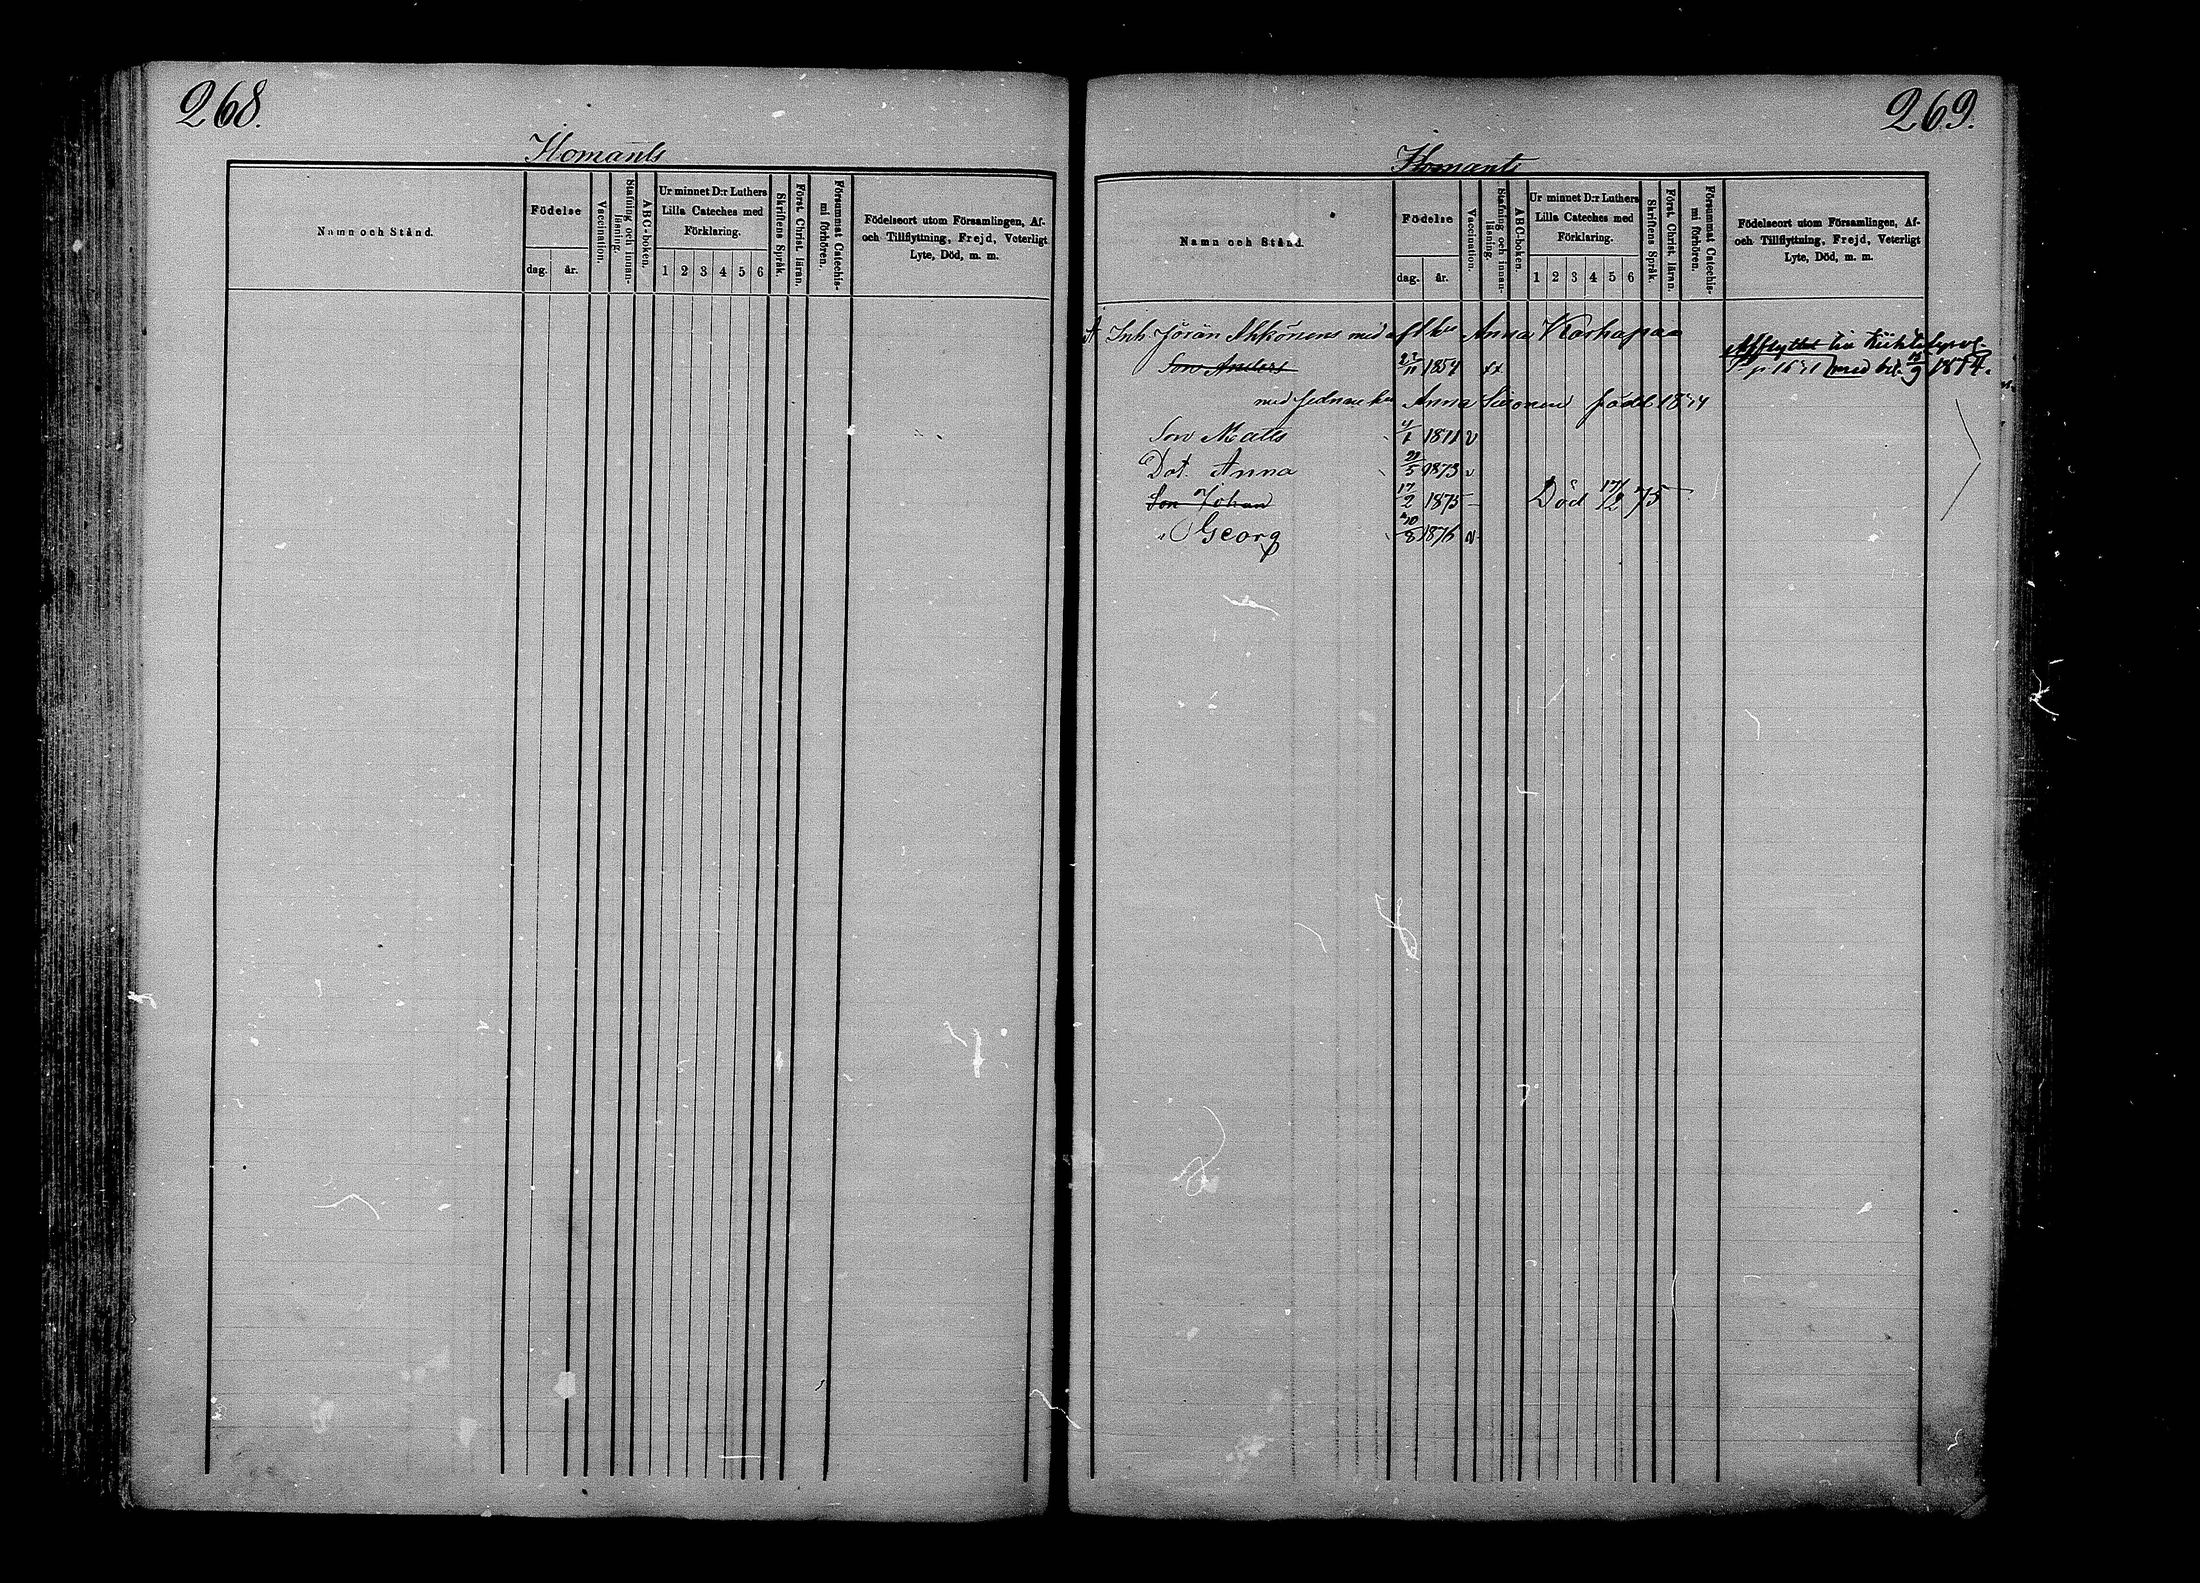 268.
Homants
Namn och Stånd.
Födelse
dag.
år.
Vaccination.
Stafning och innan-
läsning.
ABC-boken.
Ur minnet D:r Luthers
Lilla Cateches med
Förklaring.
1 2 3 4 5 6
Skriftens Språk.
Först. Christ. läran.
Försummat Catechis-
mi förhören.
Födelseort utom Församlingen, Af-
och Tillflyttning, Frejd, Veterligt
Lyte, Död, m. m.
269.
Homants
Namn och Stånd.
Födelse
dag.
år.
Vaccination.
Stafning och innan-
läsning.
ABC-boken.
Ur minnet D:r Luthers
Lilla Cateches med
Förklaring.
1 2 3 4 5 6
Skriftens Språk.
Först. Christ. läran.
Försummat Catechis-
mi förhören.
Födelseort utom Församlingen, Af-
och Tillflyttning, Frejd, Veterligt
Lyte, Död, m. m.
Inh Jöran Ahkönens med Anna Karhapaa
Afflyttat till
Son Anders 1854 med bet. 1874.
med Anna född
Son Matts v
Dot. Anna 22/5 1873 v
Son Johan 17/2 1875 - Död 17/2 75
" Georg 1876 v